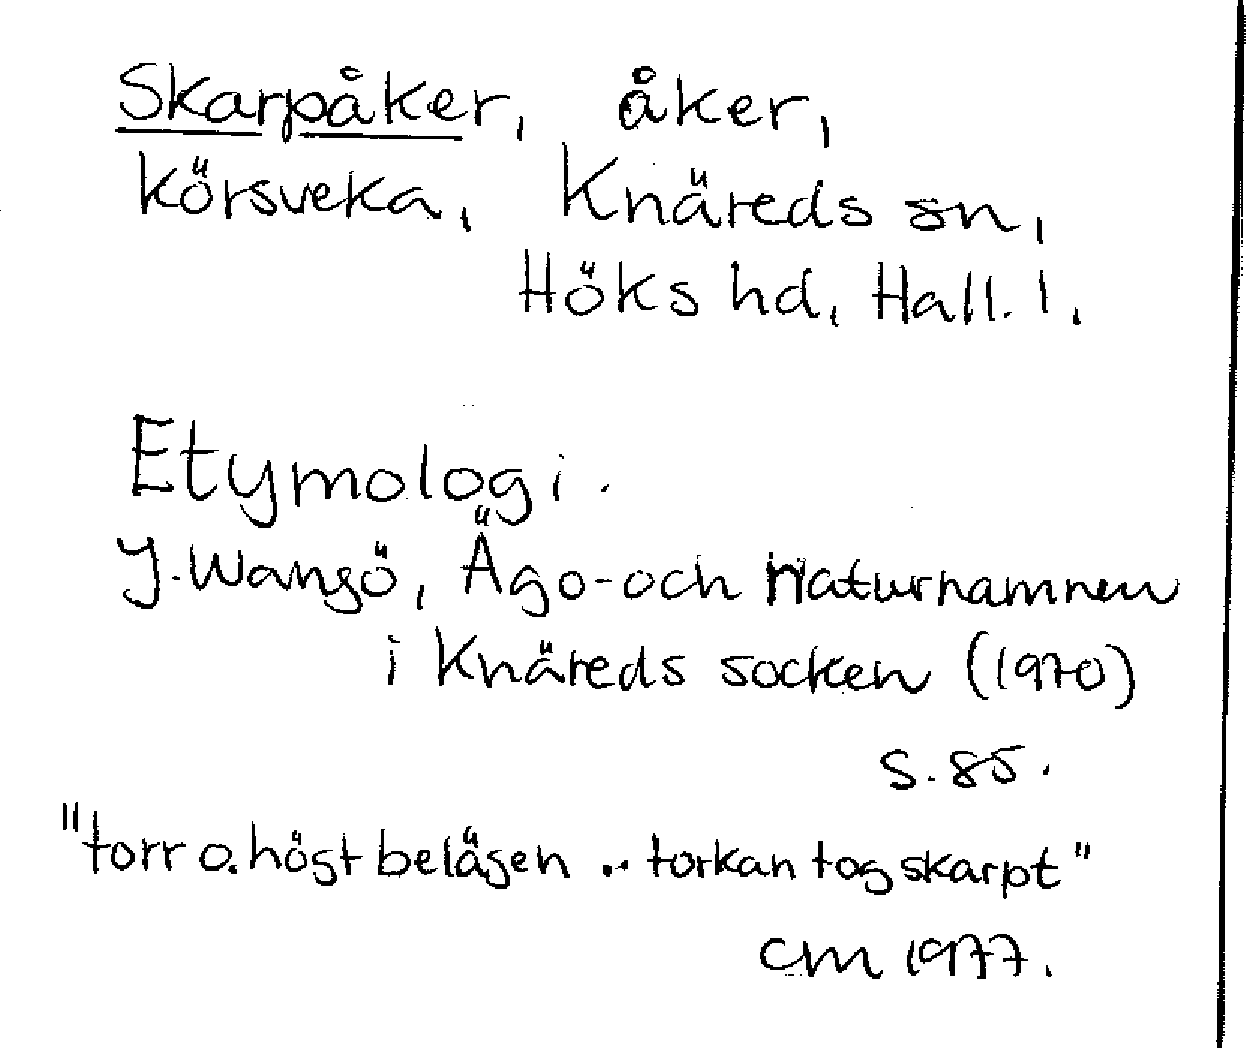 Skarpåker, åker,
Körsveka, Knäreds sn,
Höks hd, Hall. l.
Etymologi.
J. Wangö, Ägo- och Naturnamnen
i Knäreds socken (1970)
s. 85.
"torr o. högt belägen .. torkan tog skarpt"
CM 1977.